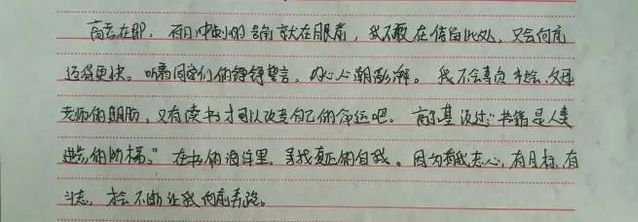 高考在即，百日冲刺的号角就在眼前，我不敢在停留此处，只会向前
迈得更快。听着同学们的铮铮誓言，内心心潮澎湃。我不会辜负 父母
老师的期盼，只有读书才可以改变自己的命运吧。高尔基说过："书籍是人类
进步的阶梯。"在书的海洋里，寻找真正的自我。因为有我恋心，有目标，有
斗志，才会不断让我向前奔跑。